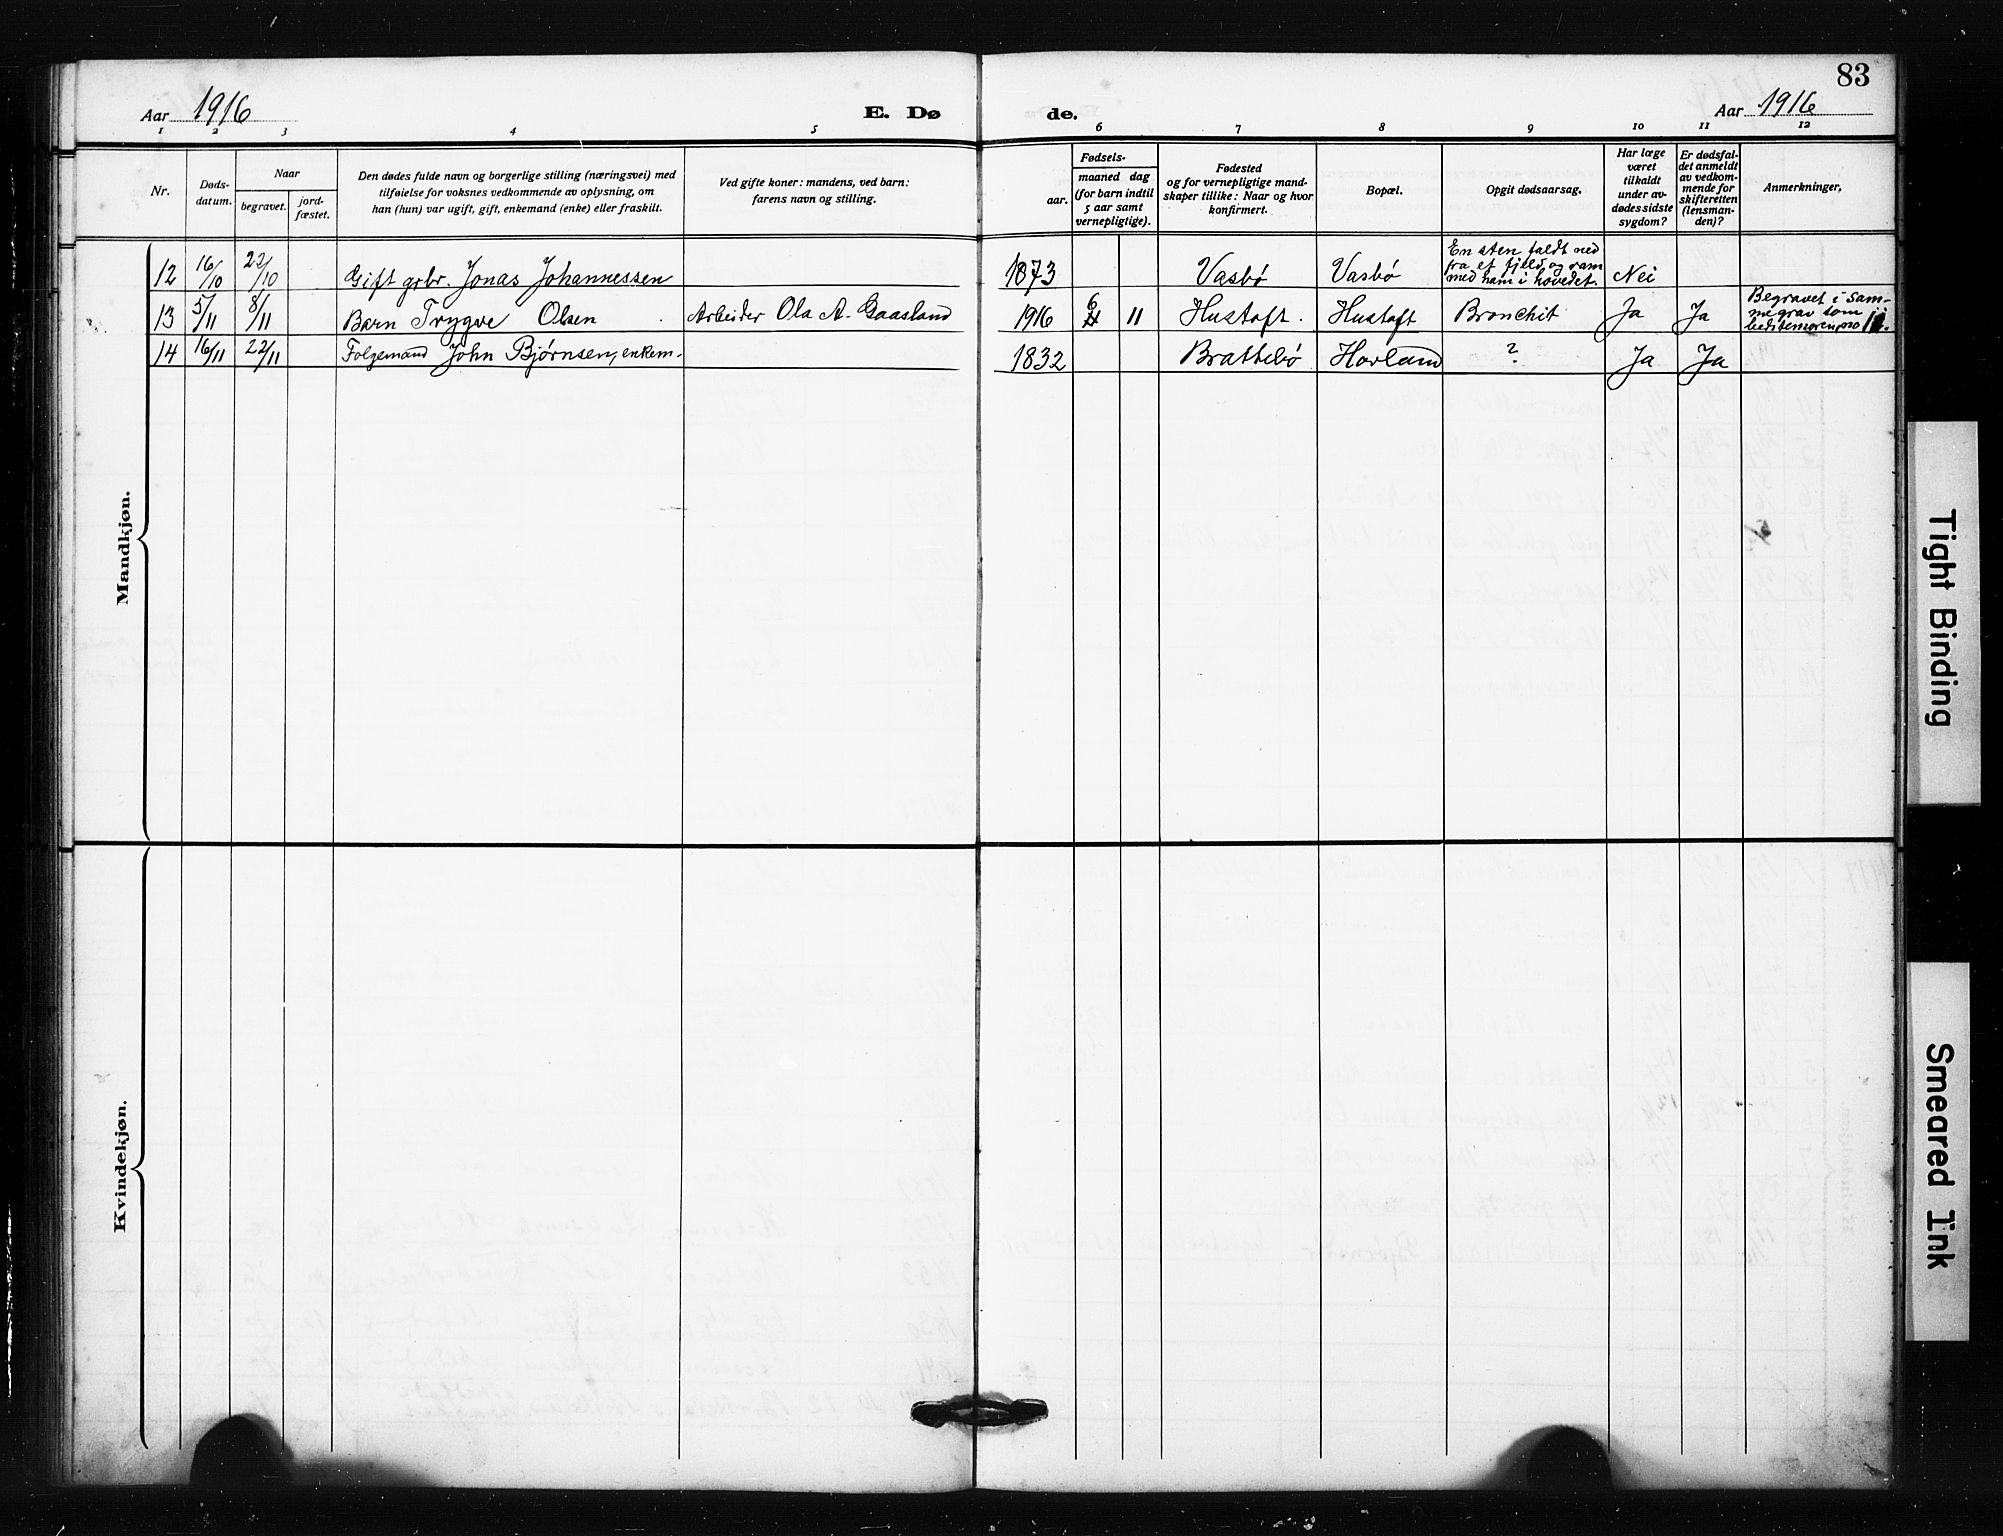 83
Aar 1916
E. Dø
de.
Aar 1916
1 2 3 4 5 6 7 8 9 10 11 12
Nr.
Døds-
datum.
Naar
begravet.
jord-
fæstet.
Den dødes fulde navn og borgerlige stilling (næringsvei) med
tilføielse for voksnes vedkommende av oplysning, om
han (hun) var ugift, gift, enkemand (enke) eller fraskilt.
Ved gifte koner: mandens, ved barn:
farens navn og stilling.
Fødsels-
aar.
maaned dag
(for barn indtil
5 aar samt
vernepligtige).
Fødested
og for vernepligtige mand-
skaper tillike: Naar og hvor
konfirmert.
Bopæl.
Opgit dødsaarsag.
Har læge
været
tilkaldt
under av-
dødes sidste
sygdom?
Er dødsfal-
det anmeldt
av vedkom-
mende for
skifteretten
(lensman-
den)?
Anmerkninger,
Mandkjøn.
12 16/10 22/10 Gift grbr. Jonas Johannessen 1873 Vasbø Vasbø
En sten faldt ned
fra et fjeld og ram
med ham i hovedet.
Nei
13 5/11 8/11 Barn Trygve Olsen Arbeider Ola A. Gaasland 1916 6 11 Hustoft. Hustoft Bronchit Ja Ja
Begravet i sam-
me grav som
bedstemoren, no
14 16/11 22/11 Følgemand John Bjørnsen, enkem. 1832 Brattebø Hovland ? Ja Ja
Kvindekjøn.
Tight Binding
Smeared Ink